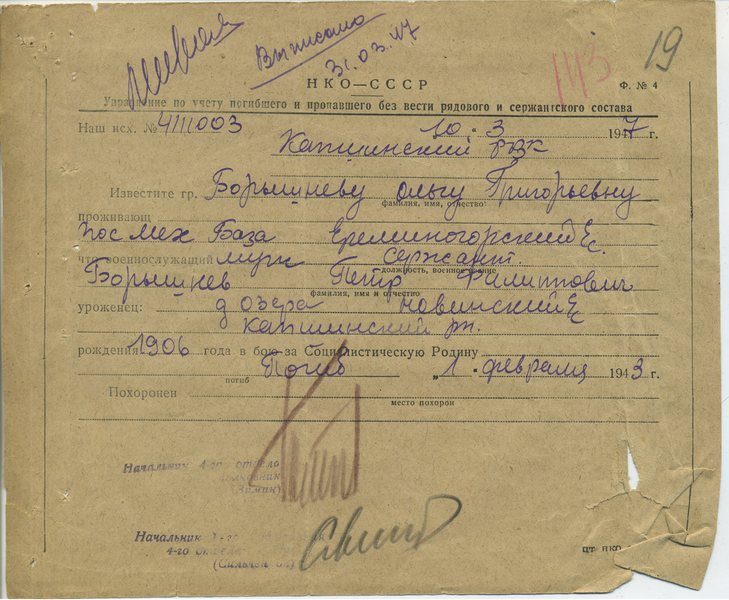 Выписано
31.03.47
143
19
НКО—СССР
Ф. № 4
Управление по учету погибшего и пропавшего без вести рядового и сержантского состава
Наш исх. № 4111003 10.3 1947 г.
Капшинский РВК
Известите гр. Борышневу Ольгу Григорьевну
фамилия, имя, отчество:
проживающ
Пос Мех База Ереминогорский с/с.
что военнослужащий муж сержант.
должность, военное звание
Борышнев Петр Филиппович
фамилия, имя и отчество
уроженец: д озера Новинский с/с
Капшинский рн.
рождения 1906 года в бою за Социалистическую Родину
Погиб „1. февраля 1943 г.
погиб
Похоронен
место похорон
Начальник 4-го отдела
(Зимин)
Начальник 1-го
4-го отдела